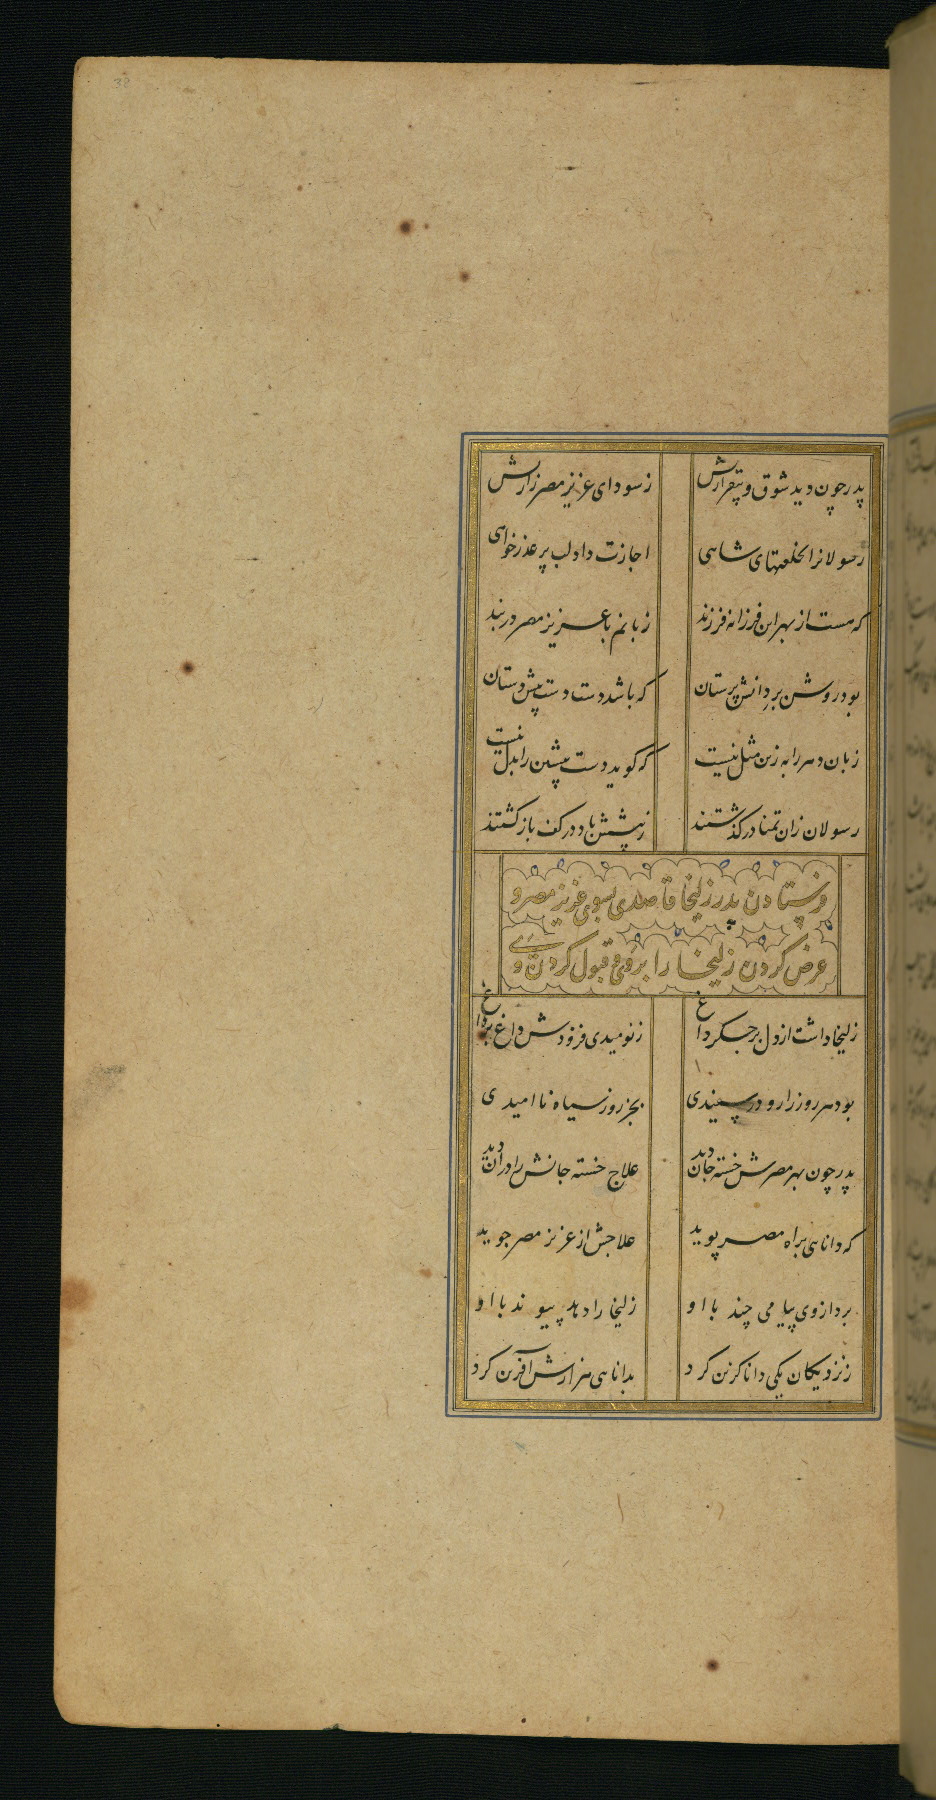 38
پدر چون دید شوق و بیقرارش ز سودای عزیز مصر زارش
رسولانرا بخلعتهای شاهی اجازت داد لب پر عذرخواهی
که هست از بهر این فرزانه فرزند زبانم با عزیز مصر در بند
بود روشن بر دانش پرستان که باشد دست دست پیش دستان
زبان دهر را به زین مثل نیست که کوید دست پیشین را بدل نیست
رسولان زان تمنا در کذشتند ز پیشش باد در کف باز کشتند
فرستادن پدر زلیخا قاصدی بسوی عزیز مصر و
عرض کردن زلیخا را بر وی و قبول کردن وی
زلیخا داشت از دل بر جکر داغ ز نومیدی فزودش داغ بر داغ
بود هر روز را رو در سپیدی بجز روز سیاه ناامیدی
پدر چون بهر مصرش خسته جان دید علاج خسته جانش را در آن دید
که دانایی براه مصر پوید علاجش از عزیز مصر جوید
برد از وی پیامی چند با او زلیخا را دهد پیوند با او
ز نزدیکان یکی دانا کزین کرد بدانایی هزارش آفرین کرد